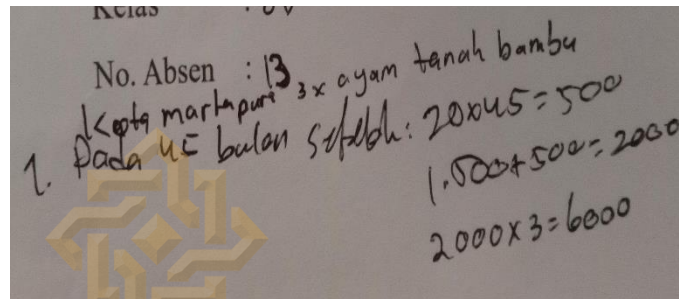 Kelas
No. Absen : 13
Kota martapura 3x ayam tanah bambu
1. Pada 45 bulan setelah : 20x45=500
1.500+500=2000
2000x3=6000